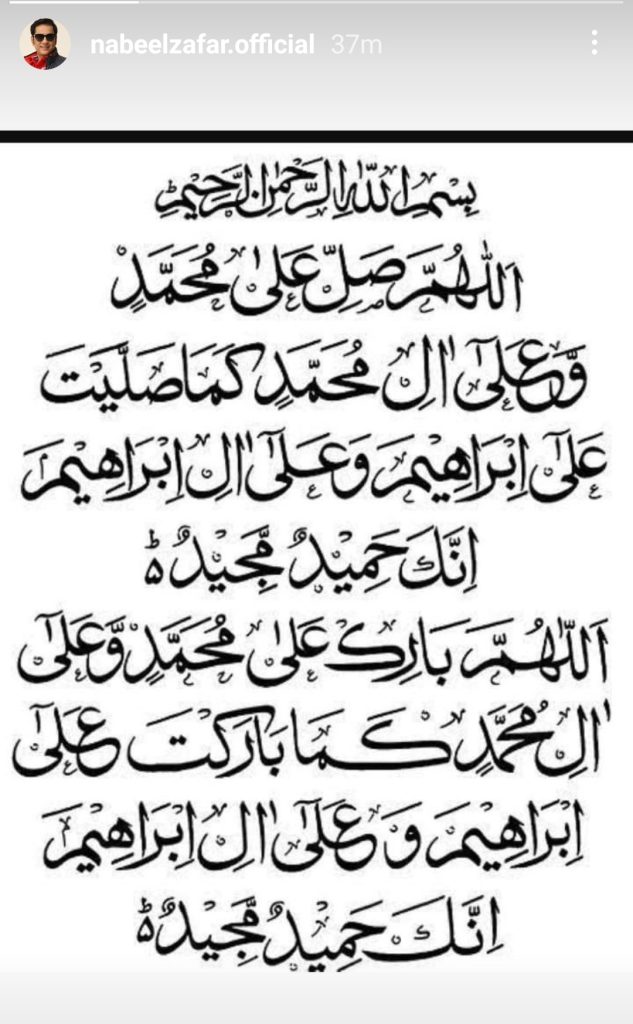 nabeelzafar.official 37m
بِسْمِ اللّٰهِ الرَّحْمٰنِ الرَّحِيْمِ
اَللّٰهُمَّ صَلِّ عَلٰى مُحَمَّدٍ
وَّعَلٰٓى اٰلِ مُحَمَّدٍ كَمَا صَلَّيْتَ
عَلٰٓى اِبْرَاهِيْمَ وَعَلٰٓى اٰلِ اِبْرَاهِيْمَ
اِنَّكَ حَمِيْدٌ مَّجِيْدٌ ؕ
اَللّٰهُمَّ بَارِكْ عَلٰى مُحَمَّدٍ وَّعَلٰٓى
اٰلِ مُحَمَّدٍ كَمَا بَارَكْتَ عَلٰٓى
اِبْرَاهِيْمَ وَعَلٰٓى اٰلِ اِبْرَاهِيْمَ
اِنَّكَ حَمِيْدٌ مَّجِيْدٌ ؕ